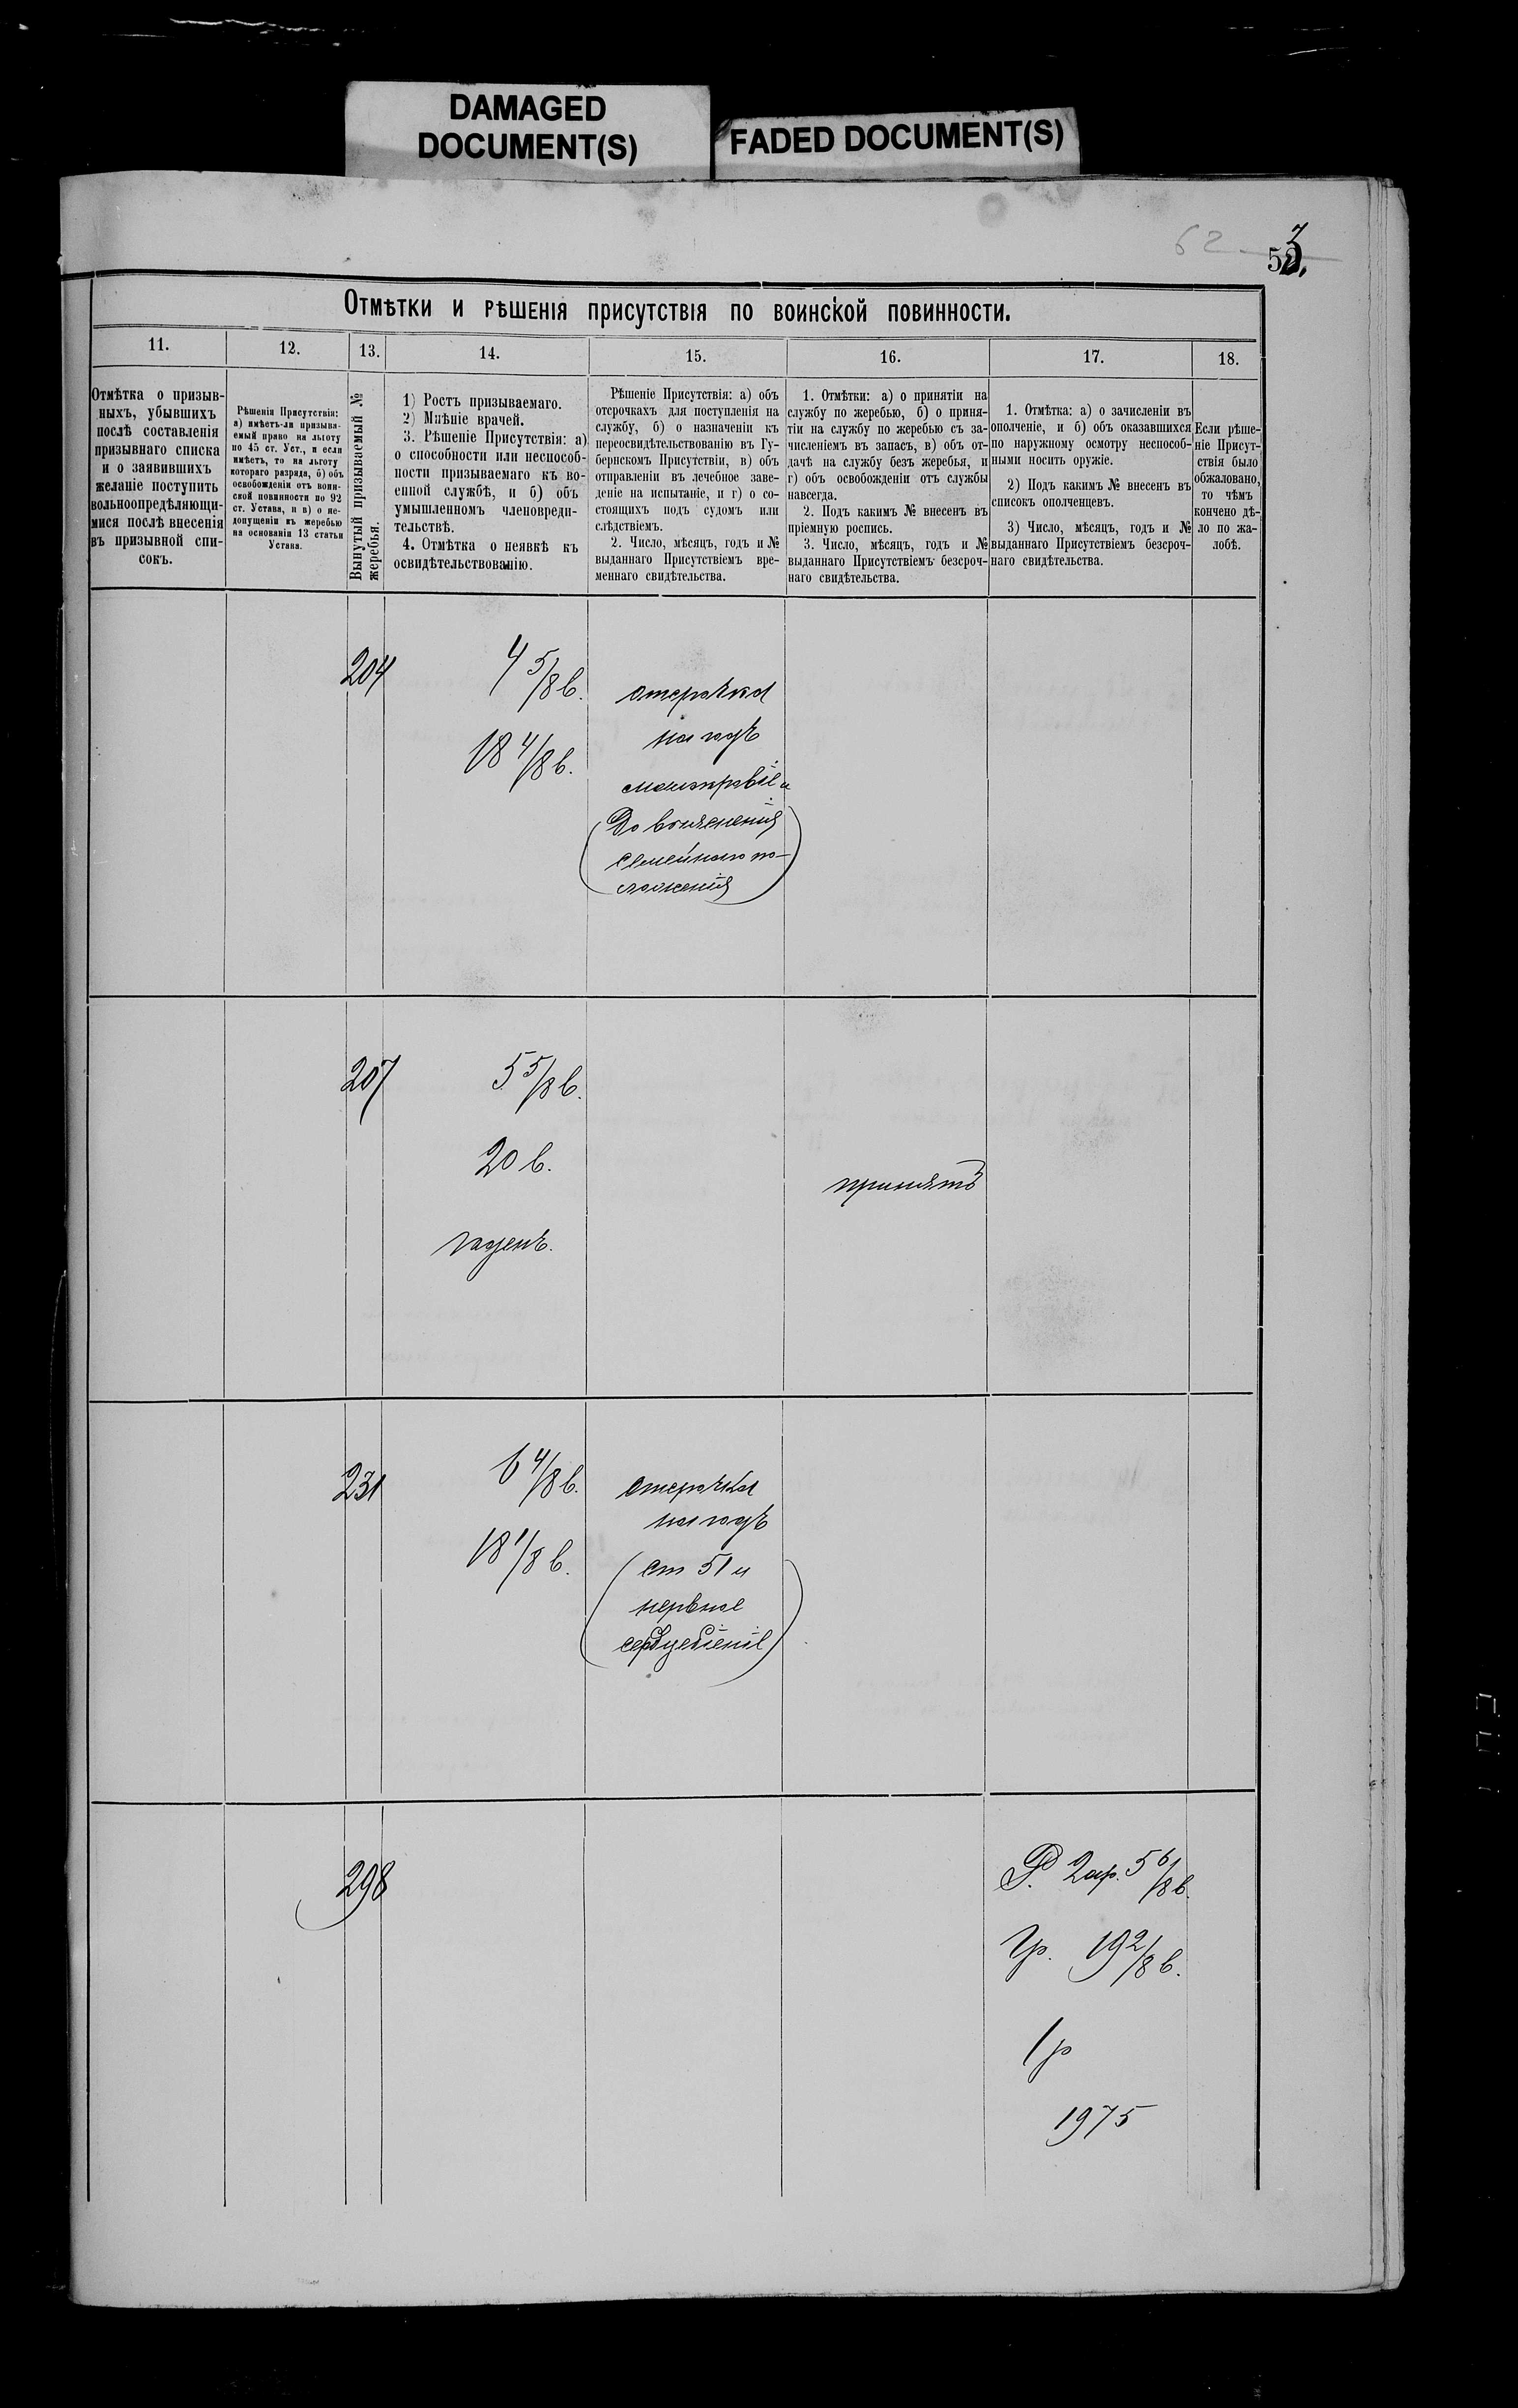 DAMAGED
DOCUMENT(S)
FADED DOCUMENT(S)
62
53.
Отмѣтки и рѣшенія присутствія по воинской повинности.
11.
12.
13.
14.
15.
16.
17.
18.
Отмѣтка о призыв-
ныхъ, убывшихъ
послѣ составленія
призывнаго списка
и о заявившихъ
желаніе поступить
вольноопредѣляющи-
мися послѣ внесенія
въ призывной спи-
сокъ.
Рѣшенія Присутствія:
а) имѣетъ-ли призыва-
емый право на льготу
по 45 ст. Уст., и если
имѣетъ, то на льготу
котораго разряда, б) объ
освобожденіи отъ воин-
ской повинности по 92
ст. Устава, и в) о не-
допущеніи къ жеребью
на основаніи 13 статьи
Устава.
Вынутый призываемый №
жеребья.
1) Ростъ призываемаго.
2) Мнѣніе врачей.
3. Рѣшеніе Присутствія: а)
о способности или неспособ-
ности призываемаго къ во-
енной службѣ, и б) объ
умышленномъ членовреди-
тельствѣ.
4. Отмѣтка о неявкѣ къ
освидѣтельствованію.
Рѣшеніе Присутствія: а) объ
отсрочкахъ для поступленія на
службу, б) о назначеніи къ
переосвидѣтельствованію въ Гу-
бернскомъ Присутствіи, в) объ
отправленіи въ лечебное заве-
деніе на испытаніе, и г) о со-
стоящихъ подъ судомъ или
слѣдствіемъ.
2. Число, мѣсяцъ, годъ и №
выданнаго Присутствіемъ вре-
меннаго свидѣтельства.
1. Отмѣтки: а) о принятіи на
службу по жеребью, б) о приня-
тіи на службу по жеребью съ за-
численіемъ въ запасъ, в) объ от-
дачѣ на службу безъ жеребья, и
г) объ освобожденіи отъ службы
навсегда.
2. Подъ какимъ № внесенъ въ
пріемную роспись.
3. Число, мѣсяцъ, годъ и №
выданнаго Присутствіемъ безсроч-
наго свидѣтельства.
1. Отмѣтка: а) о зачисленіи въ
ополченіе, и б) объ оказавшихся
по наружному осмотру неспособ-
ными носить оружіе.
2) Подъ какимъ № внесенъ въ
списокъ ополченцевъ.
3) Число, мѣсяцъ, годъ и №
выданнаго Присутствіемъ безсроч-
наго свидѣтельства.
Если рѣше-
ніе Присут-
ствія было
обжаловано,
то чѣмъ
кончено дѣ-
ло по жа-
лобѣ.
204
4 5/8 в.
18 4/8 в.
отсрочка
на годъ
малокровіе и
(До выясненія
семейнаго по-
ложенія)
207
5 5/8 в.
20 в.
годенъ.
принятъ
231
6 4/8 в.
18 1/8 в.
отсрочка
на годъ
(ст 51 и
нервное
сердцебіеніе)
298
Р. 2ар. 5 6/8 в.
Гр. 19 2/8 в.
1 р
1975